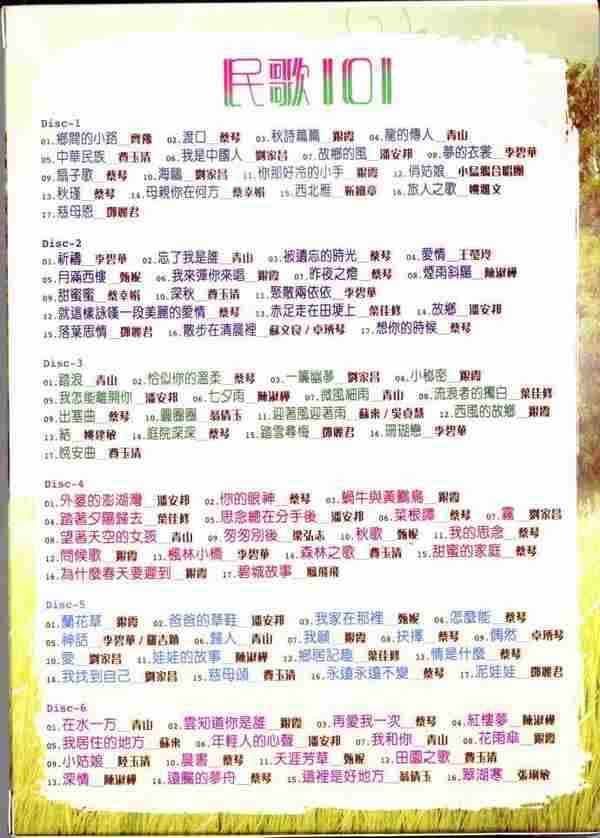 民歌101
Disc-1
01.鄉間的小路__齊豫 02.渡口__蔡琴 03.秋詩篇篇__銀霞 04.龍的傳人__青山
05.中華民族__費玉清 06.我是中國人__劉家昌 07.故鄉的風__潘安邦 08.夢的衣裳__李碧華
09.扇子歌__蔡琴 10.海鷗__劉家昌 11.你那好冷的小手__銀霞 12.俏姑娘__小茑鷯合唱團
13.秋瑾__蔡琴 14.母親你在何方__蔡幸娟 15.西北雁__靳鐵章 16.旅人之歌__姚進文
17.慈母恩__鄧麗君
Disc-2
01.祈禱__李碧華 02.忘了我是誰__青山 03.被遺忘的時光__蔡琴 04.愛情__王瑩玲
05.月滿西樓__甄妮 06.我來彈你來唱__銀霞 07.昨夜之燈__蔡琴 08.煙雨斜陽__陳淑樺
09.甜蜜蜜__蔡幸娟 10.深秋__費玉清 11.聚散兩依依__李碧華
12.就這樣詠嘆一段美麗的愛情__蔡琴 13.赤足走在田埂上__葉佳修 14.故鄉__潘安邦
15.落葉思情__鄧麗君 16.散步在清晨裡__蘇文良/卓琇琴 17.想你的時候__蔡琴
Disc-3
01.踏浪__青山 02.恰似你的溫柔__蔡琴 03.一簾幽夢__劉家昌 04.小秘密__銀霞
05.我怎能離開你__潘安邦 06.七夕雨__陳淑樺 07.微風細雨__青山 08.流浪者的獨白__葉佳修
09.出塞曲__蔡琴 10.圓圈圈__翁倩玉 11.迎著風迎著雨__蘇來/吳貞慧 12.西風的故鄉__銀霞
13.結__姚建敏 14.庭院深深__蔡琴 15.踏雪尋梅__鄧麗君 16.珊瑚戀__李碧華
17.晚安曲__費玉清
Disc-4
01.外婆的澎湖灣__潘安邦 02.你的眼神__蔡琴 03.蝸牛與黃鸝鳥__銀霞
04.踏著夕陽歸去__葉佳修 05.思念總在分手後__潘安邦 06.菜根譚__蔡琴 07.霧__劉家昌
08.望著天空的女孩__青山 09.匆匆別後__梁弘志 10.秋歌__甄妮 11.我的思念__蔡琴
12.問候歌__銀霞 13.楓林小橋__李碧華 14.森林之歌__費玉清 15.甜蜜的家庭__蔡琴
16.為什麼春天要遲到__銀霞 17.碧城故事__鳳飛飛
Disc-5
01.蘭花草__銀霞 02.爸爸的草鞋__潘安邦 03.我家在那裡__甄妮 04.怎麼能__蔡琴
05.神話__李碧華/羅吉鎮 06.歸人__青山 07.我願__銀霞 08.抉擇__蔡琴 09.偶然__卓琇琴
10.愛__劉家昌 11.娃娃的故事__陳淑樺 12.鄉居記趣__葉佳修 13.情是什麼__蔡琴
14.我找到自己__劉家昌 15.慈母頌__費玉清 16.永遠永遠不變__蔡琴 17.泥娃娃__鄧麗君
Disc-6
01.在水一方__青山 02.雲知道你是誰__銀霞 03.再愛我一次__蔡琴 04.紅樓夢__陳淑樺
05.我居住的地方__蘇來 06.年輕人的心聲__潘安邦 07.我和你__青山 08.花雨傘__銀霞
09.小姑娘__陸玉清 10.晨霧__蔡琴 11.天涯芳草__甄妮 12.田園之歌__費玉清
13.深情__陳淑樺 14.遠颺的夢舟__蔡琴 15.這裡是好地方__翁倩玉 16.翠湖寒__張琍敏